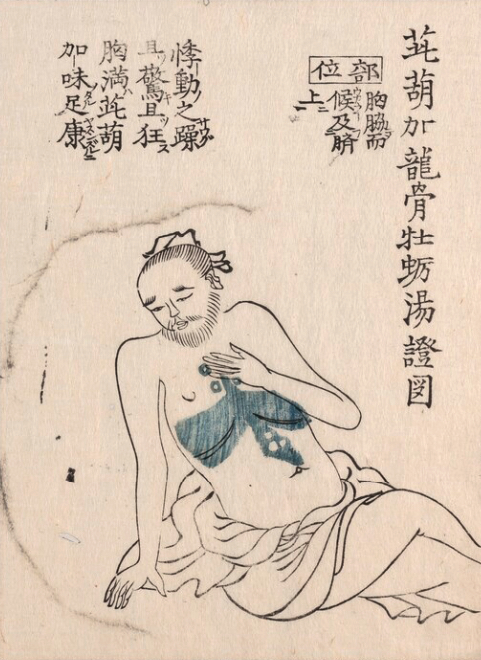 茈葫加龍骨牡蛎湯證図
部位
胸脇而
候及臍
上ニ
悸動之躁
且驚且狂
胸満茈葫
加味足康